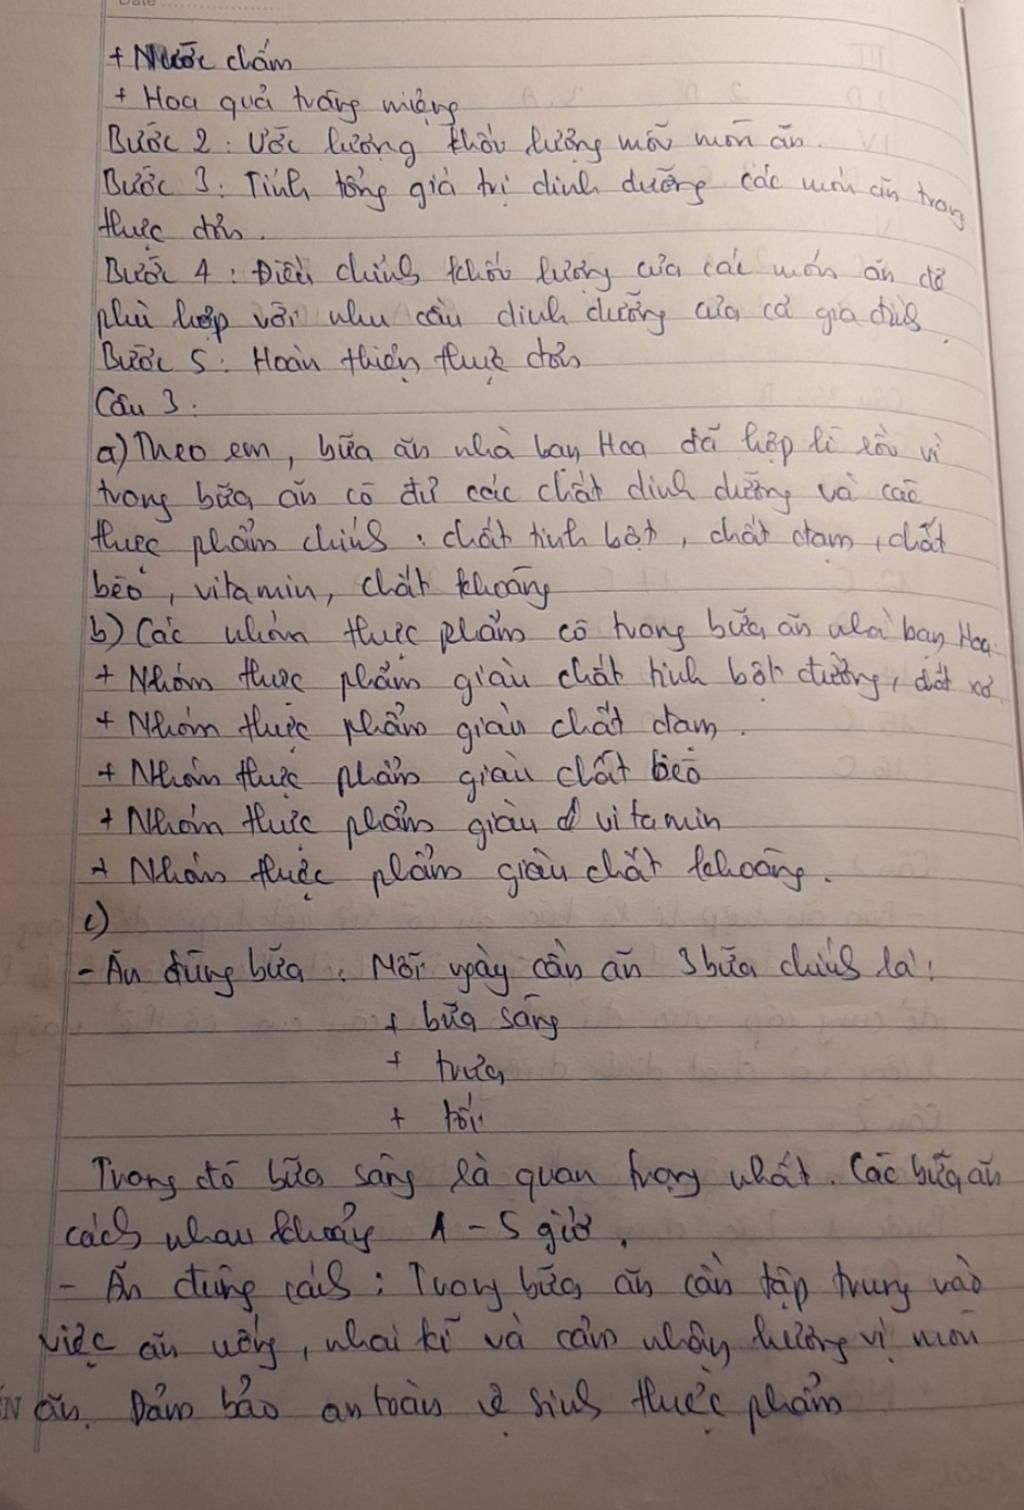 + Nước chấm
+ Hoa quả tráng miệng
Bước 2: Ước lượng khối lượng mỗi món ăn.
Bước 3: Tính tổng giá trị dinh dưỡng các món ăn trong
thực đơn.
Bước 4: Điều chỉnh khối lượng của các món ăn để
phù hợp với nhu cầu dinh dưỡng của cả gia đình.
Bước 5: Hoàn thiện thực đơn
Câu 3:
a) Theo em, bữa ăn nhà bạn Hoa đã hợp lí rồi vì
trong bữa ăn có đủ các chất dinh dưỡng và các
thực phẩm chính: chất tinh bột, chất đạm, chất
béo, vitamin, chất khoáng
b) Các nhóm thực phẩm có trong bữa ăn nhà bạn Hoa:
+ Nhóm thực phẩm giàu chất tinh bột đường, chất xơ
+ Nhóm thực phẩm giàu chất đạm.
+ Nhóm thực phẩm giàu chất béo
+ Nhóm thực phẩm giàu vitamin
+ Nhóm thực phẩm giàu chất khoáng.
c)
- Ăn đúng bữa: Mỗi ngày cần ăn 3 bữa chính là:
+ bữa sáng
+ trưa
+ tối
Trong đó bữa sáng là quan trọng nhất. Các bữa ăn
cách nhau khoảng 4 - 5 giờ.
- Ăn đúng cách: Trong bữa ăn cần tập trung vào
việc ăn uống, nhai kĩ và cảm nhận hương vị món
ăn. Đảm bảo an toàn vệ sinh thực phẩm